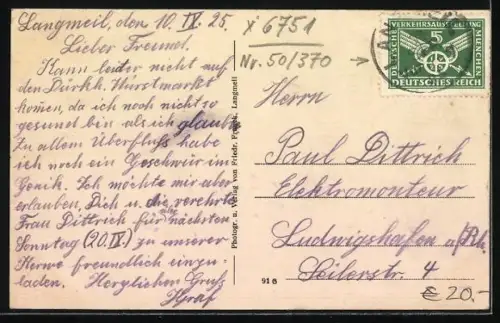 Langmeil, den 10. IX. 25.
Lieber Freund.
Kann leider nicht auf
den Dürkh. Wurstmarkt
komen, da ich noch nicht so
gesund bin als ich glaubte
Zu allem Überfluß habe
ich noch ein Geschwür im
Genik. Ich möchte mir aber
erlauben, Dich u. die verehrte
Frau Dittrich für nächsten
Sonntag (20. IX) zu unserer
Kerwe freundlich einzu-
laden. Herzlichen Gruß
Hgraf
Photogr. u. Verlag von Friedr. Langmeil
91 6
x 6751
Nr. 50/370
DEUTSCHE VERKEHRSAUSSTELLUNG MÜNCHEN
5
DEUTSCHES REICH
Herrn
Paul Dittrich
Elektromonteur
Ludwigshafen a/Rh.
Seilerstr. 4
€ 20.-